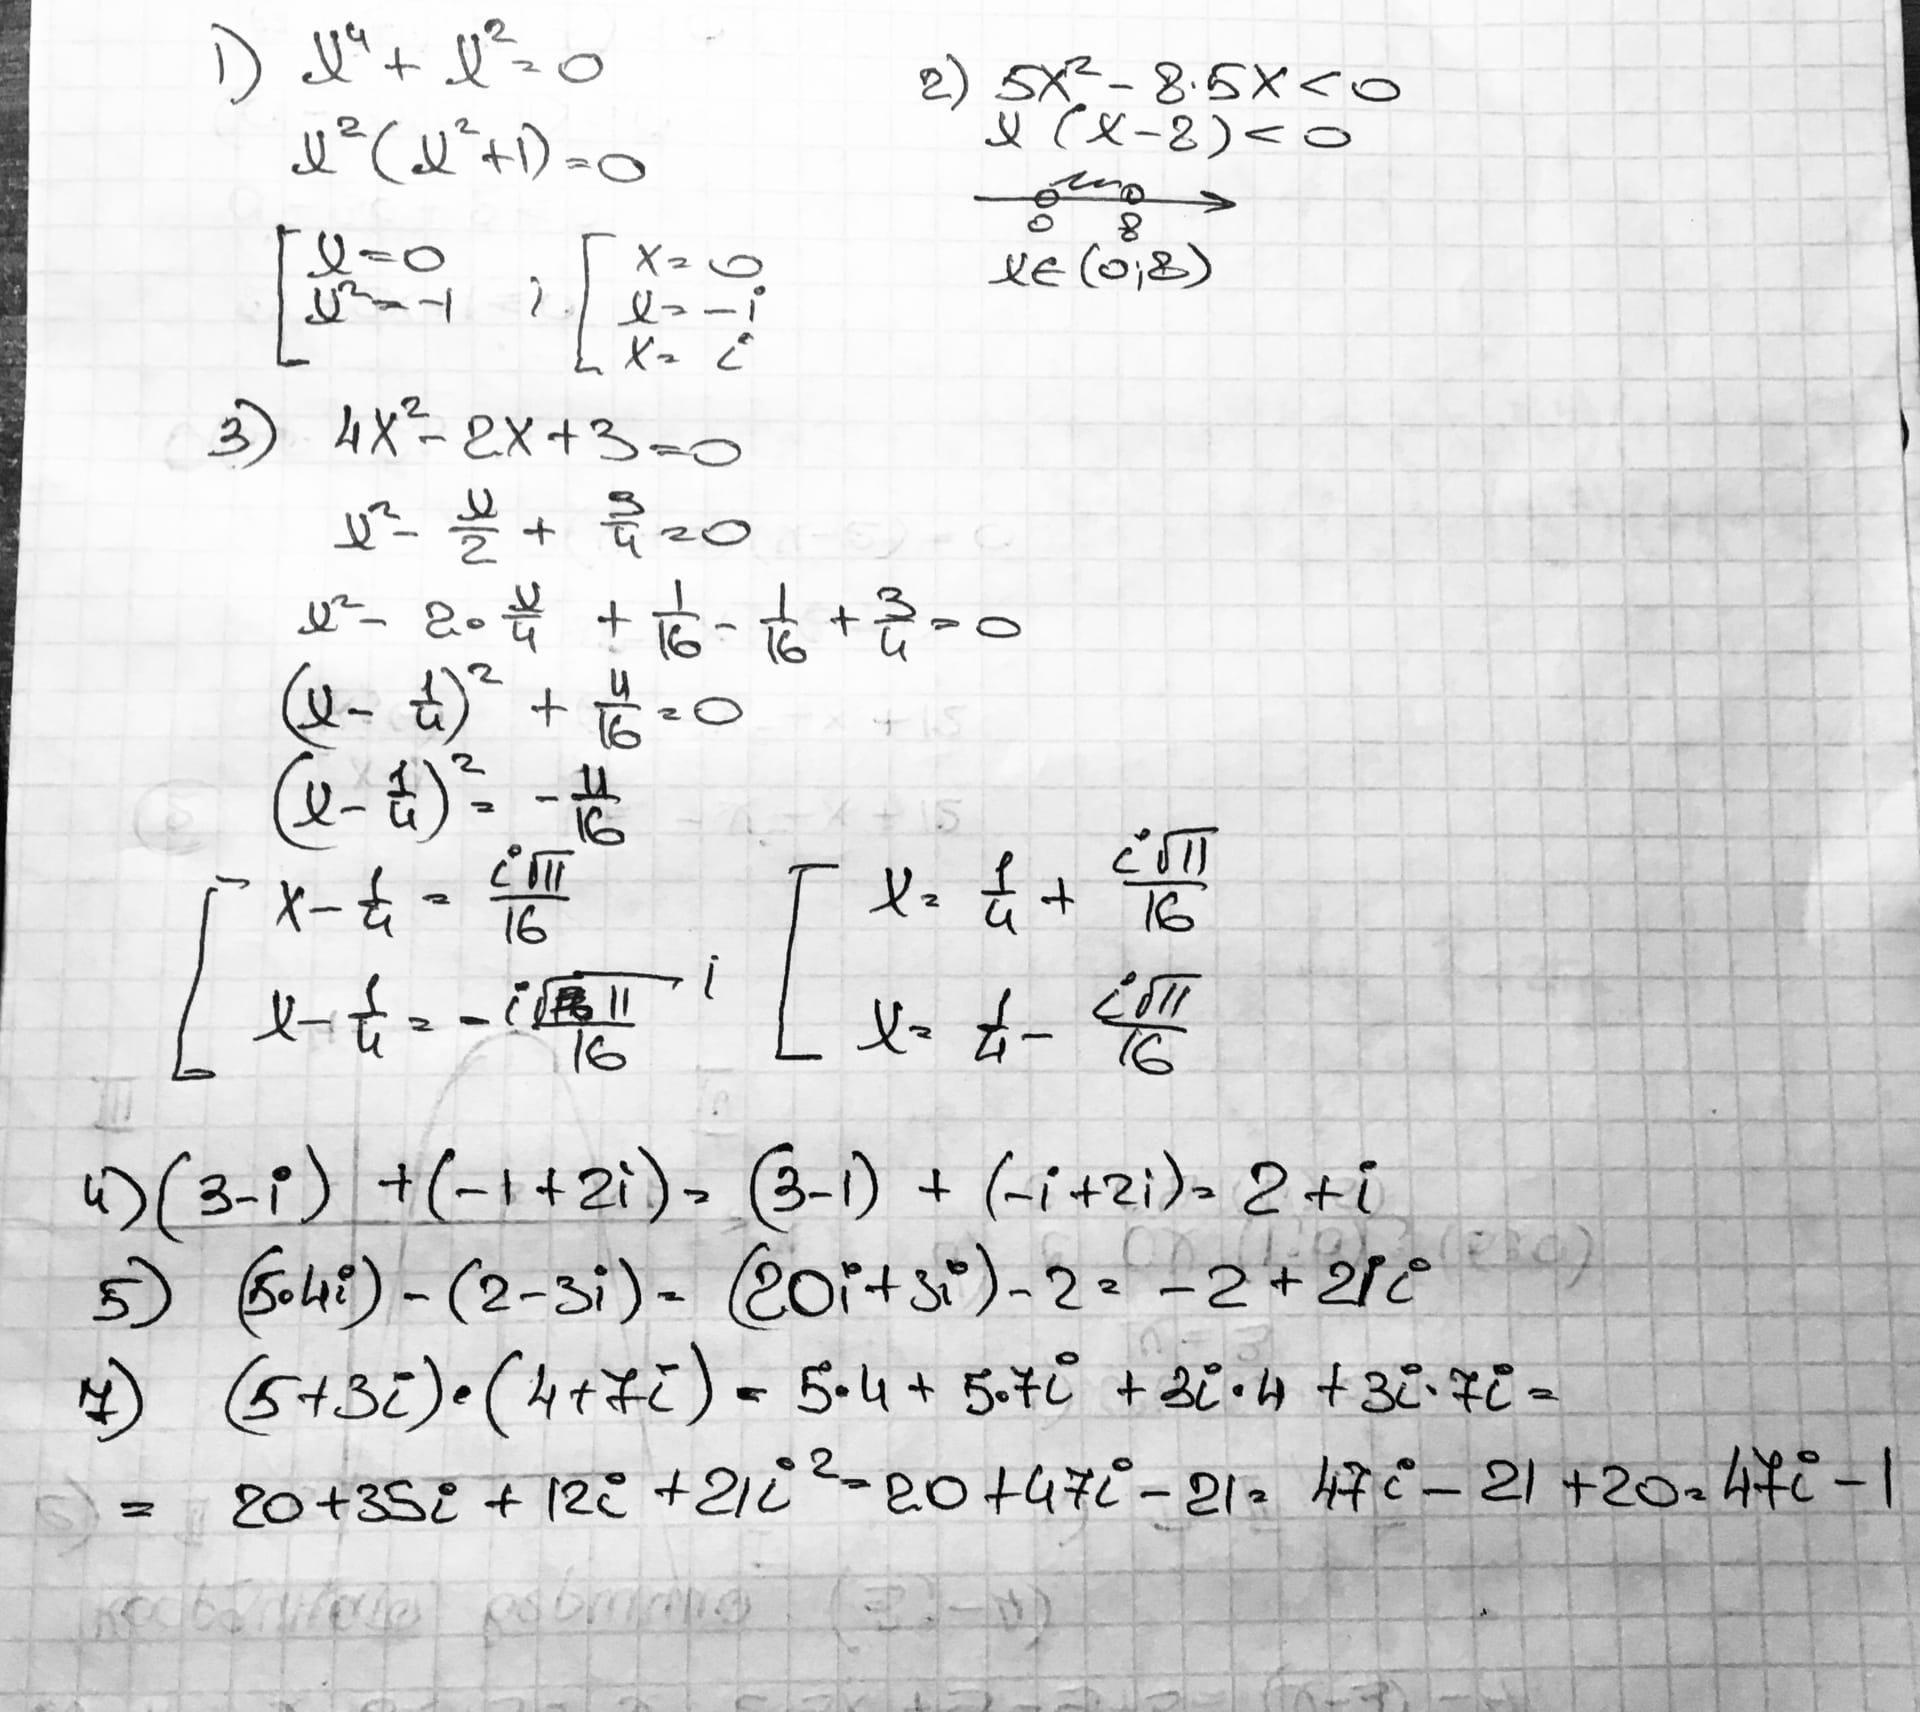 1) x⁴ + x² = 0
x² (x² + 1) = 0
[ x = 0
x² = -1 ; [ x = 0
x = -i
x = i
2) 5x² - 8·5x < 0
x (x - 8) < 0
0 8
x ∈ (0; 8)
3) 4x² - 2x + 3 = 0
x² - x/2 + 3/4 = 0
x² - 2 · x/4 + 1/16 - 1/16 + 3/4 = 0
(x - 1/4)² + 11/16 = 0
(x - 1/4)² = - 11/16
[ x - 1/4 = i√11/16 [ x = 1/4 + i√11/16
x - 1/4 = - i√11/16 ; x = 1/4 - i√11/16
4) (3 - i) + (-1 + 2i) = (3 - 1) + (-i + 2i) = 2 + i
5) (5·4i) - (2 - 3i) = (20i + 3i) - 2 = -2 + 21i
7) (5 + 3i) · (4 + 7i) = 5·4 + 5·7i + 3i·4 + 3i·7i =
= 20 + 35i + 12i + 21i² = 20 + 47i - 21 = 47i - 21 + 20 = 47i - 1